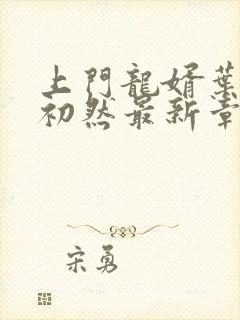 上門龍婿葉
初然最新章
宋勇